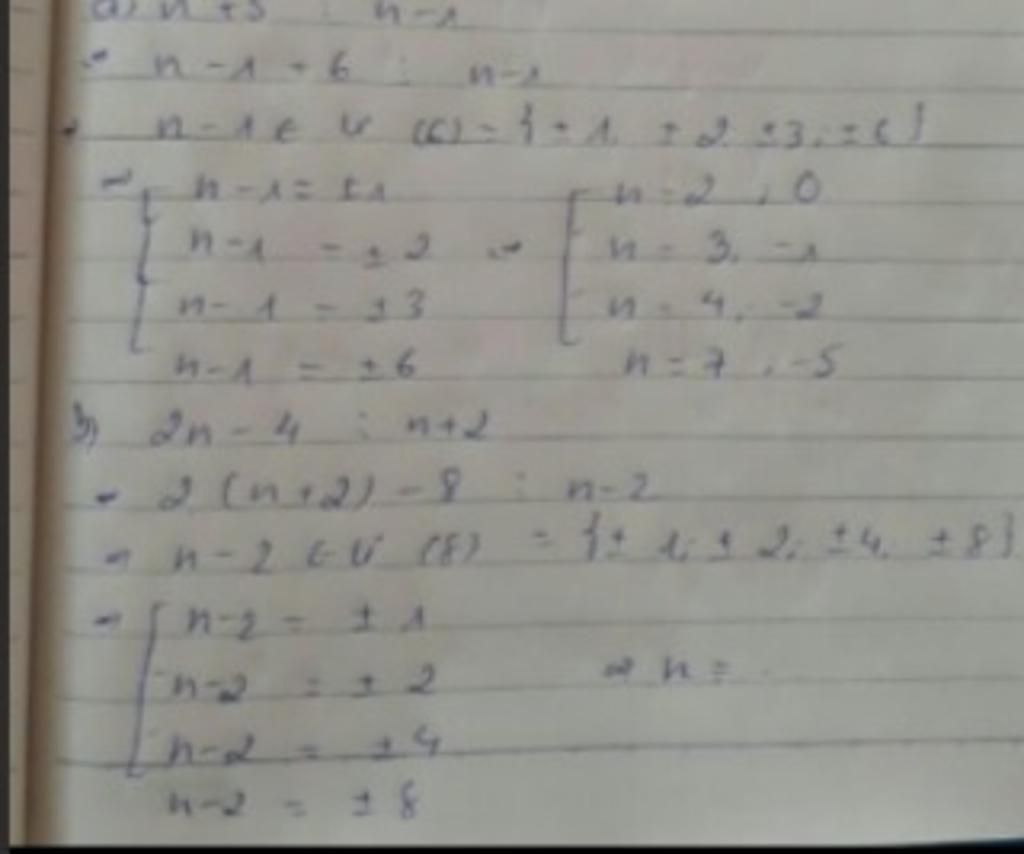 a) n + 5 ⋮ n - 1
⇒ n - 1 + 6 ⋮ n - 1
⇒ n - 1 ∈ Ư (6) = {± 1, ± 2, ±3, ± 6}
⇒ n - 1 = ±1 n = 2 , 0
n - 1 = ± 2 ⇒ n = 3, -1
n - 1 = ±3 n = 4, -2
n - 1 = ±6 n = 7 , -5
b) 2n - 4 ⋮ n + 2
⇒ 2 (n + 2) - 8 ⋮ n - 2
⇒ n - 2 ∈ Ư (8) = {± 1, ± 2, ±4, ±8}
⇒ n - 2 = ± 1
n - 2 = ± 2 ⇒ n =
n - 2 = ±4
n - 2 = ± 8